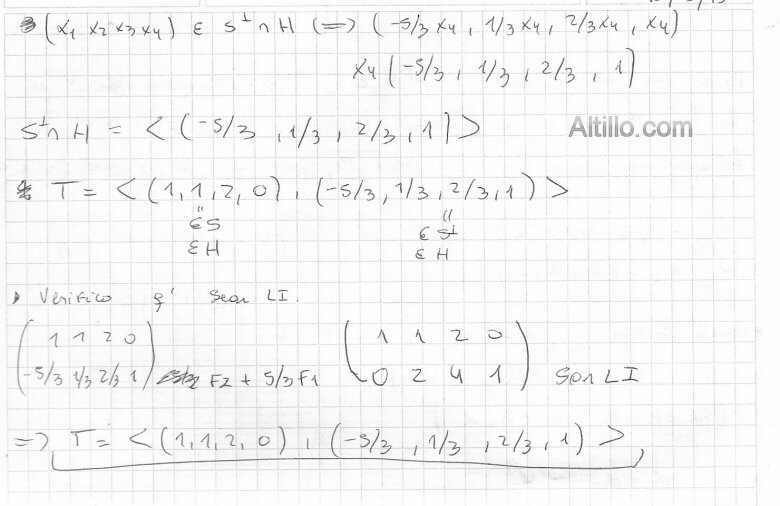 (x₁ x₂ x₃ x₄) ∈ S⊥ ∩ H ⟺ (-5/3 x₄, 1/3 x₄, 2/3 x₄, x₄)
x₄ (-5/3, 1/3, 2/3, 1)
S⊥ ∩ H = < (-5/3, 1/3, 2/3, 1) >
Altillo.com
T = < (1,1,2,0), (-5/3, 1/3, 2/3, 1) >
" "
∈ S ∈ S⊥
∈ H ∈ H
Verifico q' sean LI.
( 1 1 2 0 ) ( 1 1 2 0 )
( -5/3 1/3 2/3 1 ) F2 + 5/3 F1 ( 0 2 4 1 ) Son LI
=> T = < (1,1,2,0), (-5/3, 1/3, 2/3, 1) >